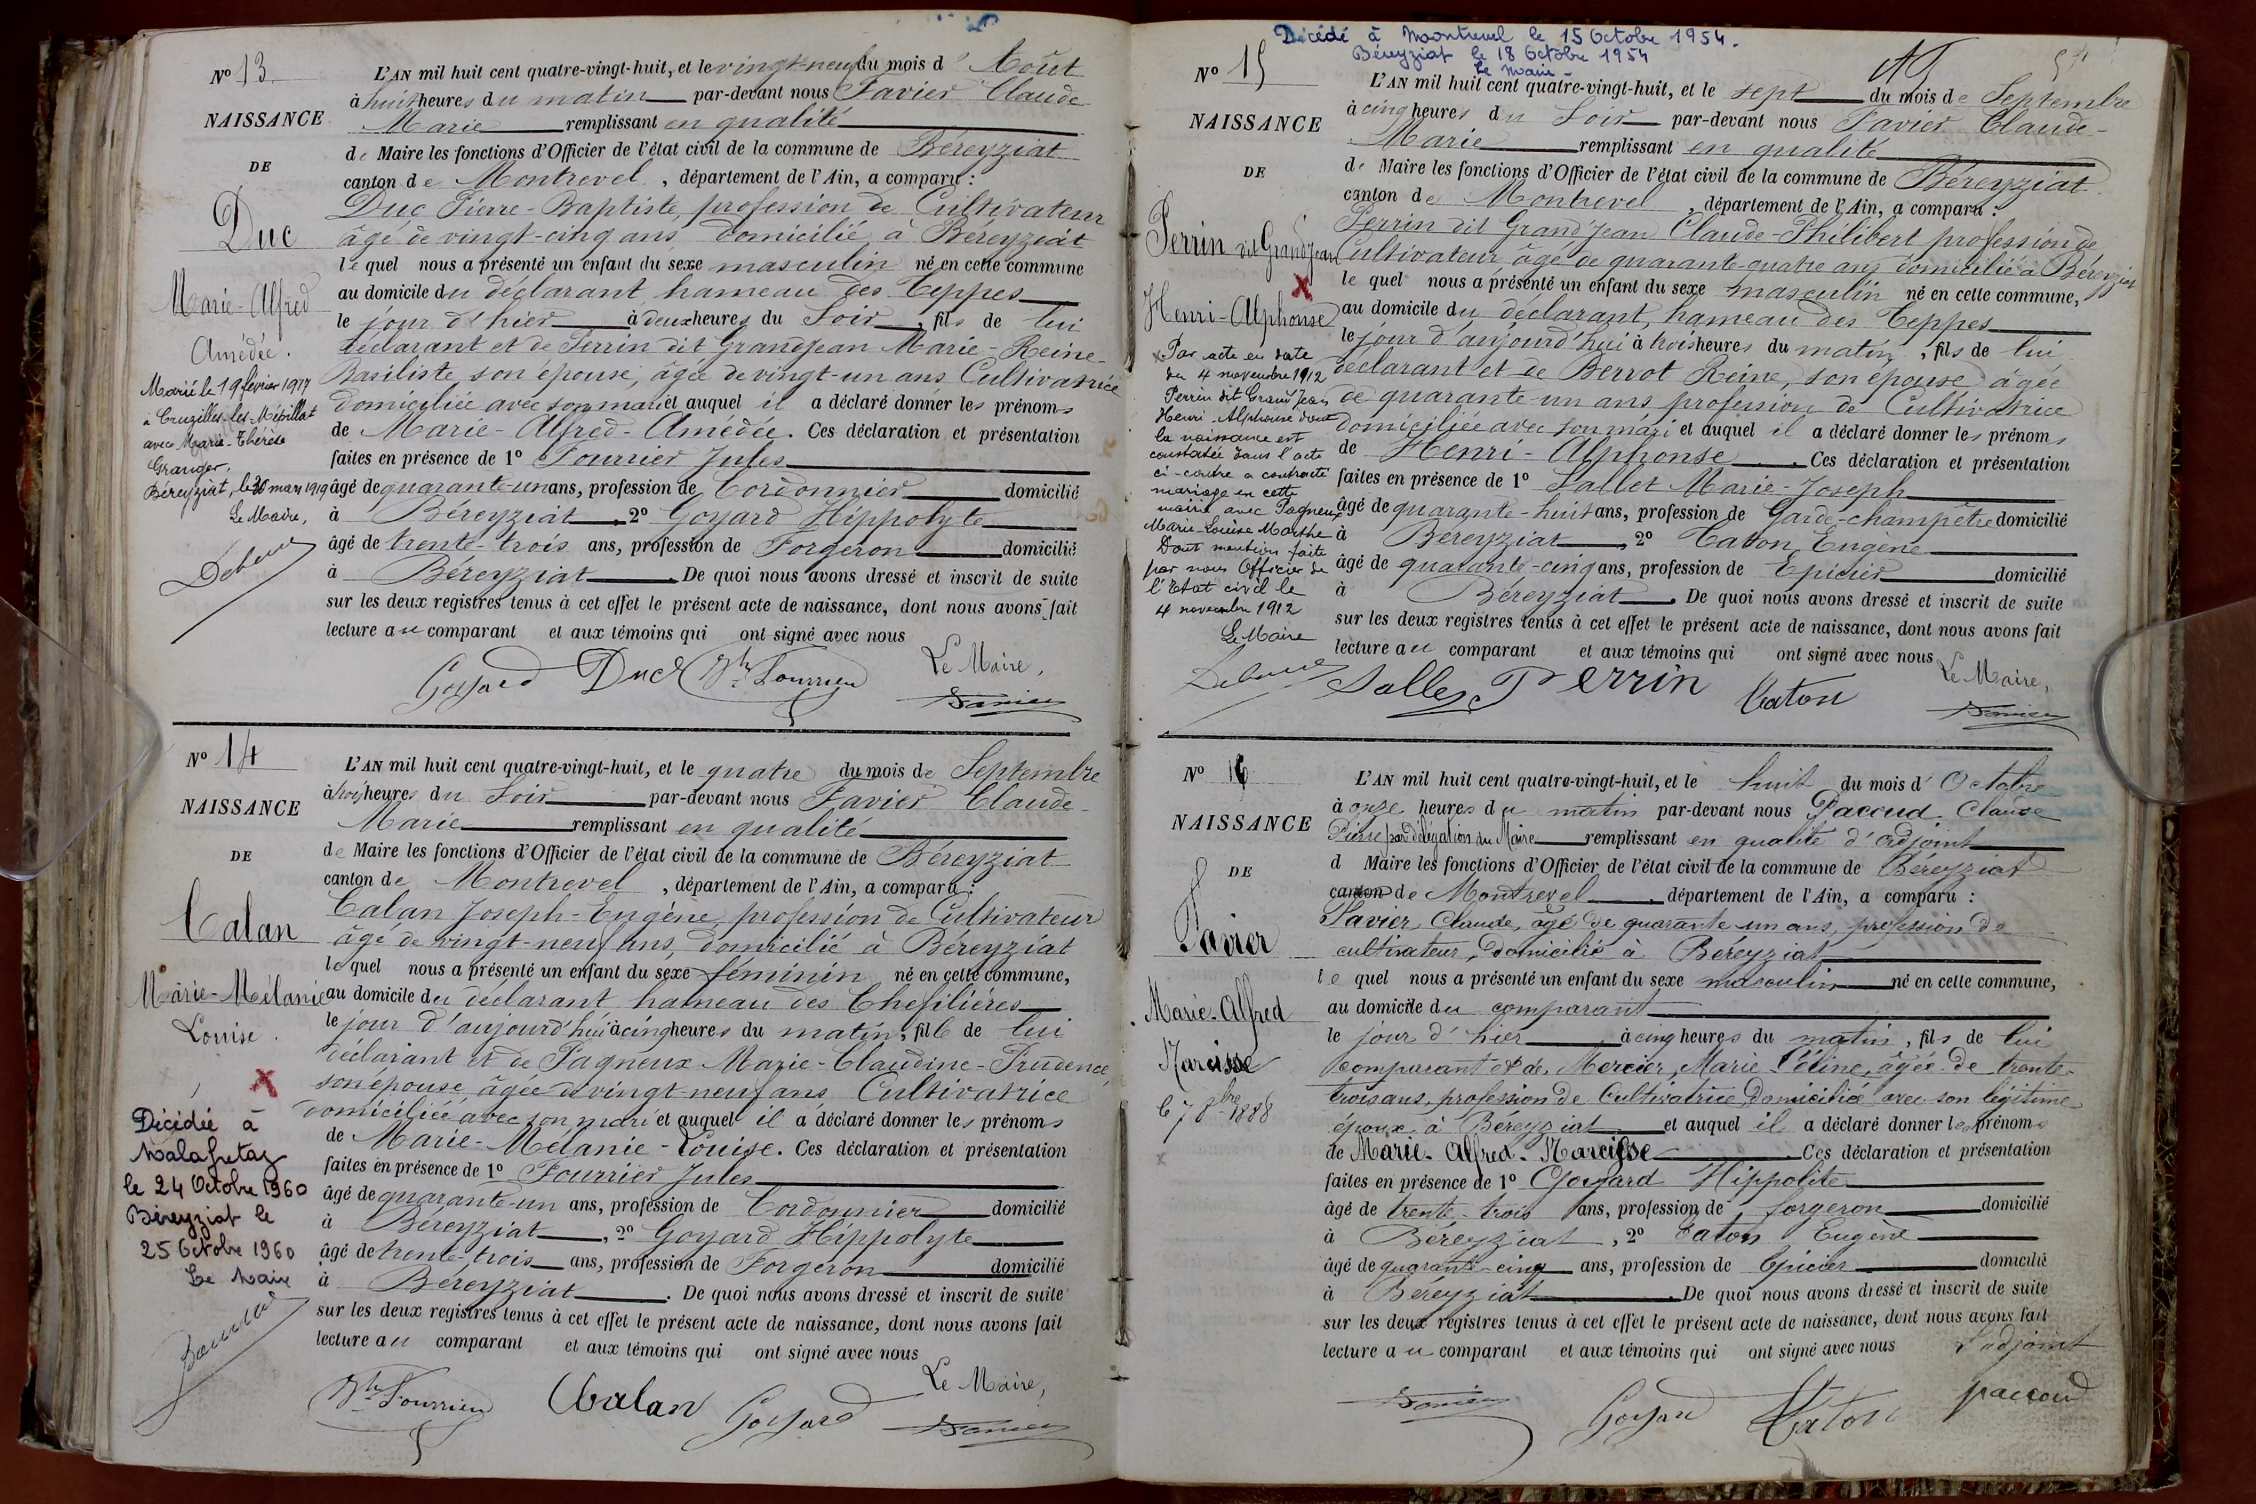 Nº 13.
NAISSANCE
DE
Duc
Marie-Alfred
Amédée.
Marié le 19 février 1917
à Cruzilles-les-Mépillat
avec Marie-Thérèse
Granger.
Béreyziat, le 30 mars 1919
Le Maire,
L'AN mil huit cent quatre-vingt-huit, et le vingt-neuf du mois d'Août
à huit heures du matin par-devant nous Favier Claude
Marie remplissant en qualité
de Maire les fonctions d'Officier de l'état civil de la commune de Béreyziat
canton de Montrevel, département de l'Ain, a comparu :
Duc Pierre-Baptiste, profession de Cultivateur
âgé de vingt-cinq ans domicilié à Béreyziat
lequel nous a présenté un enfant du sexe masculin né en cette commune
au domicile du déclarant hameau des Teppes
le jour d'hier à deux heures du Soir, fils de lui
déclarant et de Perrin dit Grandjean Marie-Reine-
Basiliste son épouse, âgée de vingt-un ans Cultivatrice
domiciliée avec son mari et auquel il a déclaré donner les prénoms
de Marie-Alfred-Amédée. Ces déclaration et présentation
faites en présence de 1º Fourrier Jules
âgé de quarante-un ans, profession de Cordonnier domicilié
à Béreyziat, 2º Goyard Hippolyte
âgé de trente-trois ans, profession de Forgeron domicilié
à Béreyziat. De quoi nous avons dressé et inscrit de suite
sur les deux registres tenus à cet effet le présent acte de naissance, dont nous avons fait
lecture au comparant et aux témoins qui ont signé avec nous
Le Maire,
Goyard Duc Fourrier Favier
Nº 14
NAISSANCE
DE
Catan
Marie-Mélanie
Louise.
X
Décédée à
Malafretaz
le 24 Octobre 1960
Béreyziat le
25 Octobre 1960
Le Maire
L'AN mil huit cent quatre-vingt-huit, et le quatre du mois de Septembre
à trois heures du Soir par-devant nous Favier Claude-
Marie remplissant en qualité
de Maire les fonctions d'Officier de l'état civil de la commune de Béreyziat
canton de Montrevel, département de l'Ain, a comparu :
Catan Joseph-Eugène, profession de Cultivateur
âgé de vingt-neuf ans, domicilié à Béreyziat
lequel nous a présenté un enfant du sexe féminin né en cette commune,
au domicile du déclarant hameau des Chefilières
le jour d'aujourd'hui à cinq heures du matin, fille de lui
déclarant et de Pagneux Marie-Claudine-Prudence,
son épouse âgée de vingt-neuf ans Cultivatrice
domiciliée avec son mari et auquel il a déclaré donner les prénoms
de Marie-Mélanie-Louise. Ces déclaration et présentation
faites en présence de 1º Fourrier Jules
âgé de quarante-un ans, profession de Cordonnier domicilié
à Béreyziat, 2º Goyard Hippolyte
âgé de trente-trois ans, profession de Forgeron domicilié
à Béreyziat. De quoi nous avons dressé et inscrit de suite
sur les deux registres tenus à cet effet le présent acte de naissance, dont nous avons fait
lecture au comparant et aux témoins qui ont signé avec nous
Le Maire,
Fourrier Catan Goyard Favier
Décédé à Montrevel le 15 Octobre 1954.
Béreyziat le 18 Octobre 1954
Le Maire
Nº 15
NAISSANCE
DE
Perrin dit Grandjean
X
Henri-Alphonse
x Par acte en date
du 4 novembre 1912
Perrin dit Grand Jean
Henri-Alphonse dont
la naissance est
constatée dans l'acte
ci-contre a contracté
mariage en cette
mairie avec Pagneux
Marie-Louise Marthe
Dont mention faite
par nous Officier de
l'Etat civil le
4 novembre 1912
Le Maire
L'AN mil huit cent quatre-vingt-huit, et le sept du mois de Septembre
à cinq heures du Soir par-devant nous Favier Claude-
Marie remplissant en qualité
de Maire les fonctions d'Officier de l'état civil de la commune de Béreyziat
canton de Montrevel, département de l'Ain, a comparu :
Perrin dit Grandjean Claude-Philibert profession de
Cultivateur âgé de quarante-quatre ans domicilié à Béreyziat
lequel nous a présenté un enfant du sexe masculin né en cette commune,
au domicile du déclarant, hameau des Teppes
le jour d'aujourd'hui à trois heures du matin, fils de lui
déclarant et de Berrot Reine, son épouse âgée
de quarante-un ans profession de Cultivatrice
domiciliée avec son mari et auquel il a déclaré donner les prénoms
de Henri-Alphonse. Ces déclaration et présentation
faites en présence de 1º Sallet Marie-Joseph
âgé de quarante-huit ans, profession de Garde-champêtre domicilié
à Béreyziat, 2º Caton Eugène
âgé de quarante-cinq ans, profession de Epicier domicilié
à Béreyziat. De quoi nous avons dressé et inscrit de suite
sur les deux registres tenus à cet effet le présent acte de naissance, dont nous avons fait
lecture au comparant et aux témoins qui ont signé avec nous
Le Maire,
Sallet Perrin Caton Favier
Nº 16
NAISSANCE
DE
Favier
Marie-Alfred
Narcisse
le 7 8bre 1888
x
L'AN mil huit cent quatre-vingt-huit, et le huit du mois d'Octobre
à onze heures du matin par-devant nous Paccoud Claude
Pierre par délégation du Maire remplissant en qualité d'adjoint
d Maire les fonctions d'Officier de l'état civil de la commune de Béreyziat
canton de Montrevel, département de l'Ain, a comparu :
Favier, Claude, âgé de quarante un ans, profession de
cultivateur, domicilié à Béreyziat
lequel nous a présenté un enfant du sexe masculin né en cette commune,
au domicile du comparant
le jour d'hier à cinq heures du matin, fils de lui
comparant et de Mercier, Marie Céline, âgée de trente-
trois ans, profession de Cultivatrice, domiciliée avec son légitime
époux à Béreyziat et auquel il a déclaré donner les prénoms
de Marie-Alfred-Narcisse Ces déclaration et présentation
faites en présence de 1º Goyard Hippolite
âgé de trente-trois ans, profession de forgeron domicilié
à Béreyziat, 2º Caton Eugène
âgé de quarante-cinq ans, profession de Epicier domicilié
à Béreyziat. De quoi nous avons dressé et inscrit de suite
sur les deux registres tenus à cet effet le présent acte de naissance, dont nous avons fait
lecture au comparant et aux témoins qui ont signé avec nous
L'adjoint
Favier Goyard Caton Paccoud